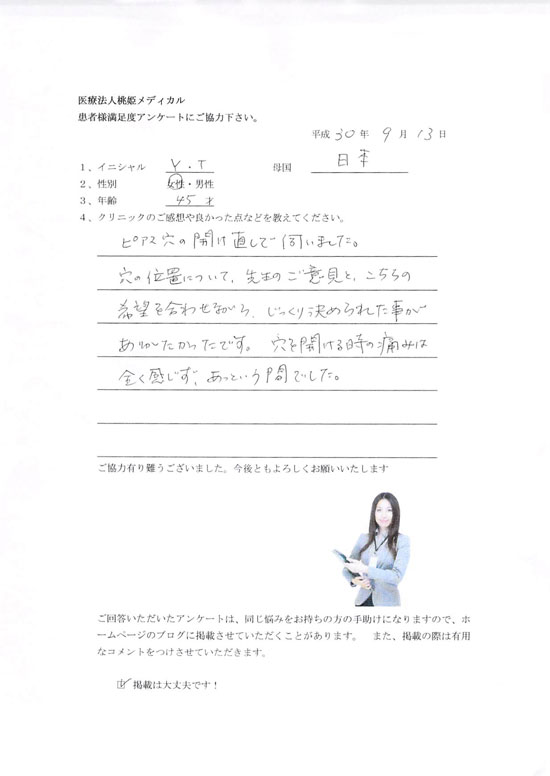 医療法人桃姫メディカル
患者様満足度アンケートにご協力下さい。
平成 30 年 9 月 13 日
1、イニシャル Y.T 母国 日本
2、性別 女性・男性
3、年齢 45才
4、クリニックのご感想や良かった点などを教えてください。
ピアス穴の開け直しで伺いました。
穴の位置について、先生のご意見と、こちらの
希望を合わせながら、じっくり決められた事が
ありがたかったです。 穴を開ける時の痛みは
全く感じず、あっという間でした。
ご協力有り難うございました。今後ともよろしくお願いいたします
ご回答いただいたアンケートは、同じ悩みをお持ちの方の手助けになりますので、ホ
ームページのブログに掲載させていただくことがあります。 また、掲載の際は有用
なコメントをつけさせていただきます。
☑ 掲載は大丈夫です！